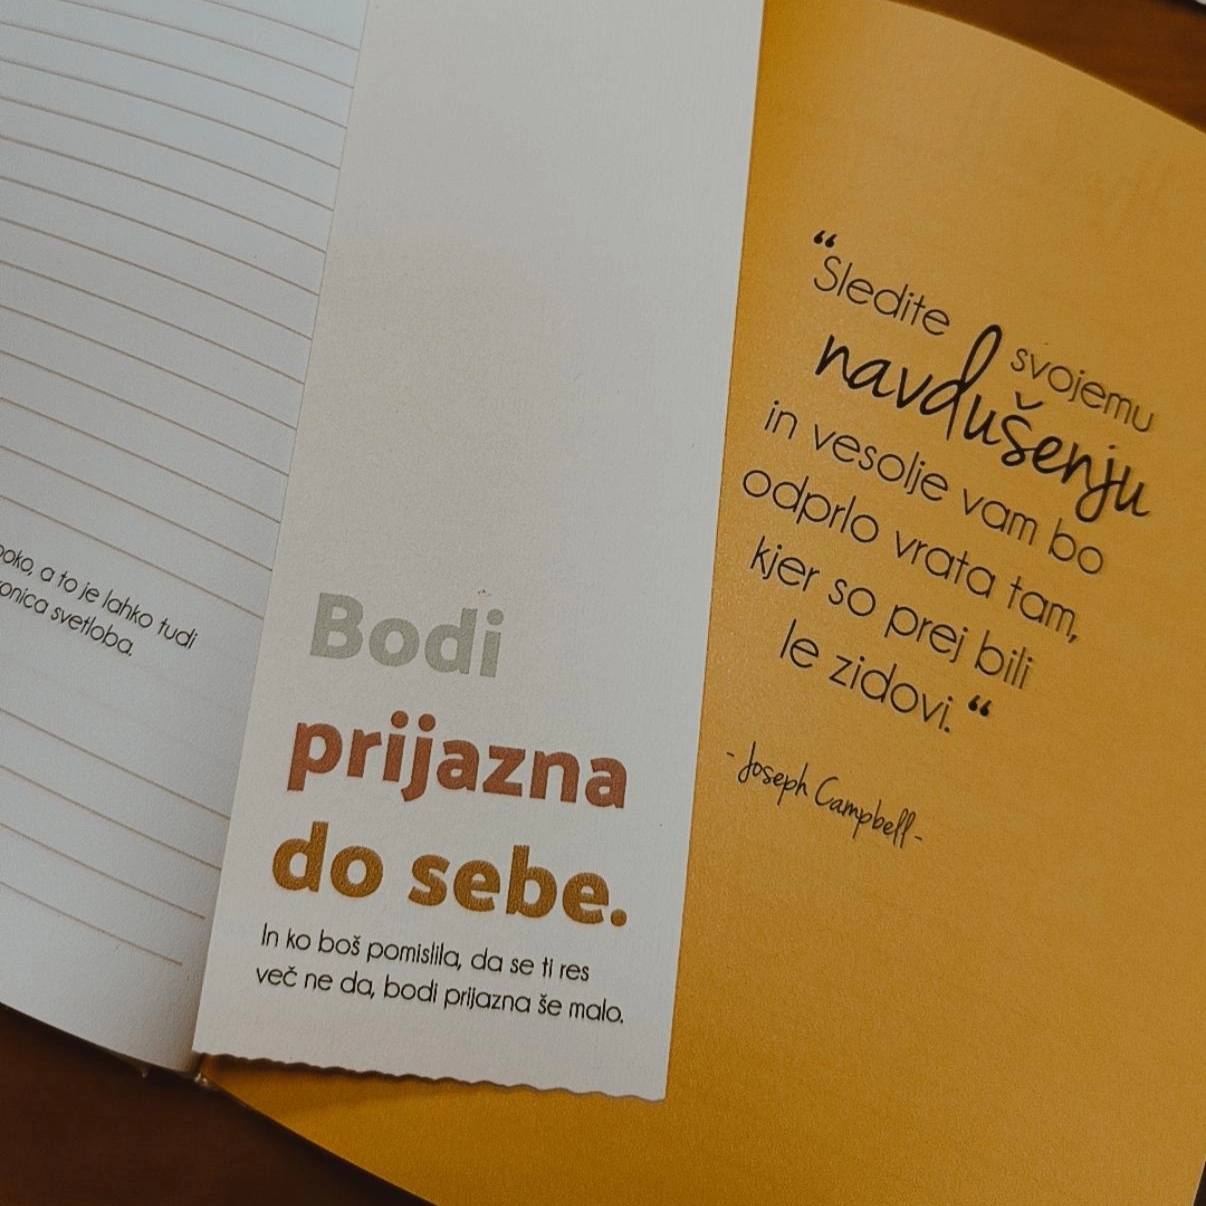 a to je lahko tudi
svetloba.
Bodi
prijazna
do sebe.
In ko boš pomislila, da se ti res
več ne da, bodi prijazna še malo.
“Sledite svojemu
navdušenju
in vesolje vam bo
odprlo vrata tam,
kjer so prej bili
le zidovi.“
- Joseph Campbell -